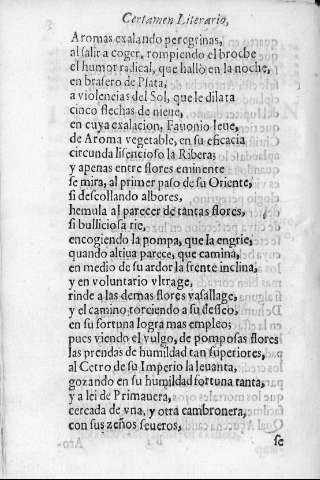 Certamen Literario,
Aromas exalando peregrinas,
al salir a coger, rompiendo el broche
el humor radical, que hallò en la noche,
en brasero de Plata,
a violencias del Sol, que le dilata
cinco flechas de nieue,
en cuya exalacion, Fauonio leue,
de Aroma vegetable, en su eficacia
circunda lisencioso la Ribera;
y apenas entre flores eminente
se mira, al primer paso de su Oriente,
si descollando albores,
hemula al parecer de tantas flores,
si bulliciosa rie,
encogiendo la pompa, que la engrie,
quando altiua parece, que camina,
en medio de su ardor la frente inclina,
y en voluntario vltrage,
rinde a las demas flores vasallage,
y el camino torciendo a su desseo,
en su fortuna logra mas empleo;
pues viendo el vulgo, de pomposas flores
las prendas de humildad tan superiores,
al Cetro de su Imperio la leuanta,
gozando en su humildad fortuna tanta,
y a lei de Primauera,
cercada de vna, y otra cambronera,
con sus zeños seueros,
se